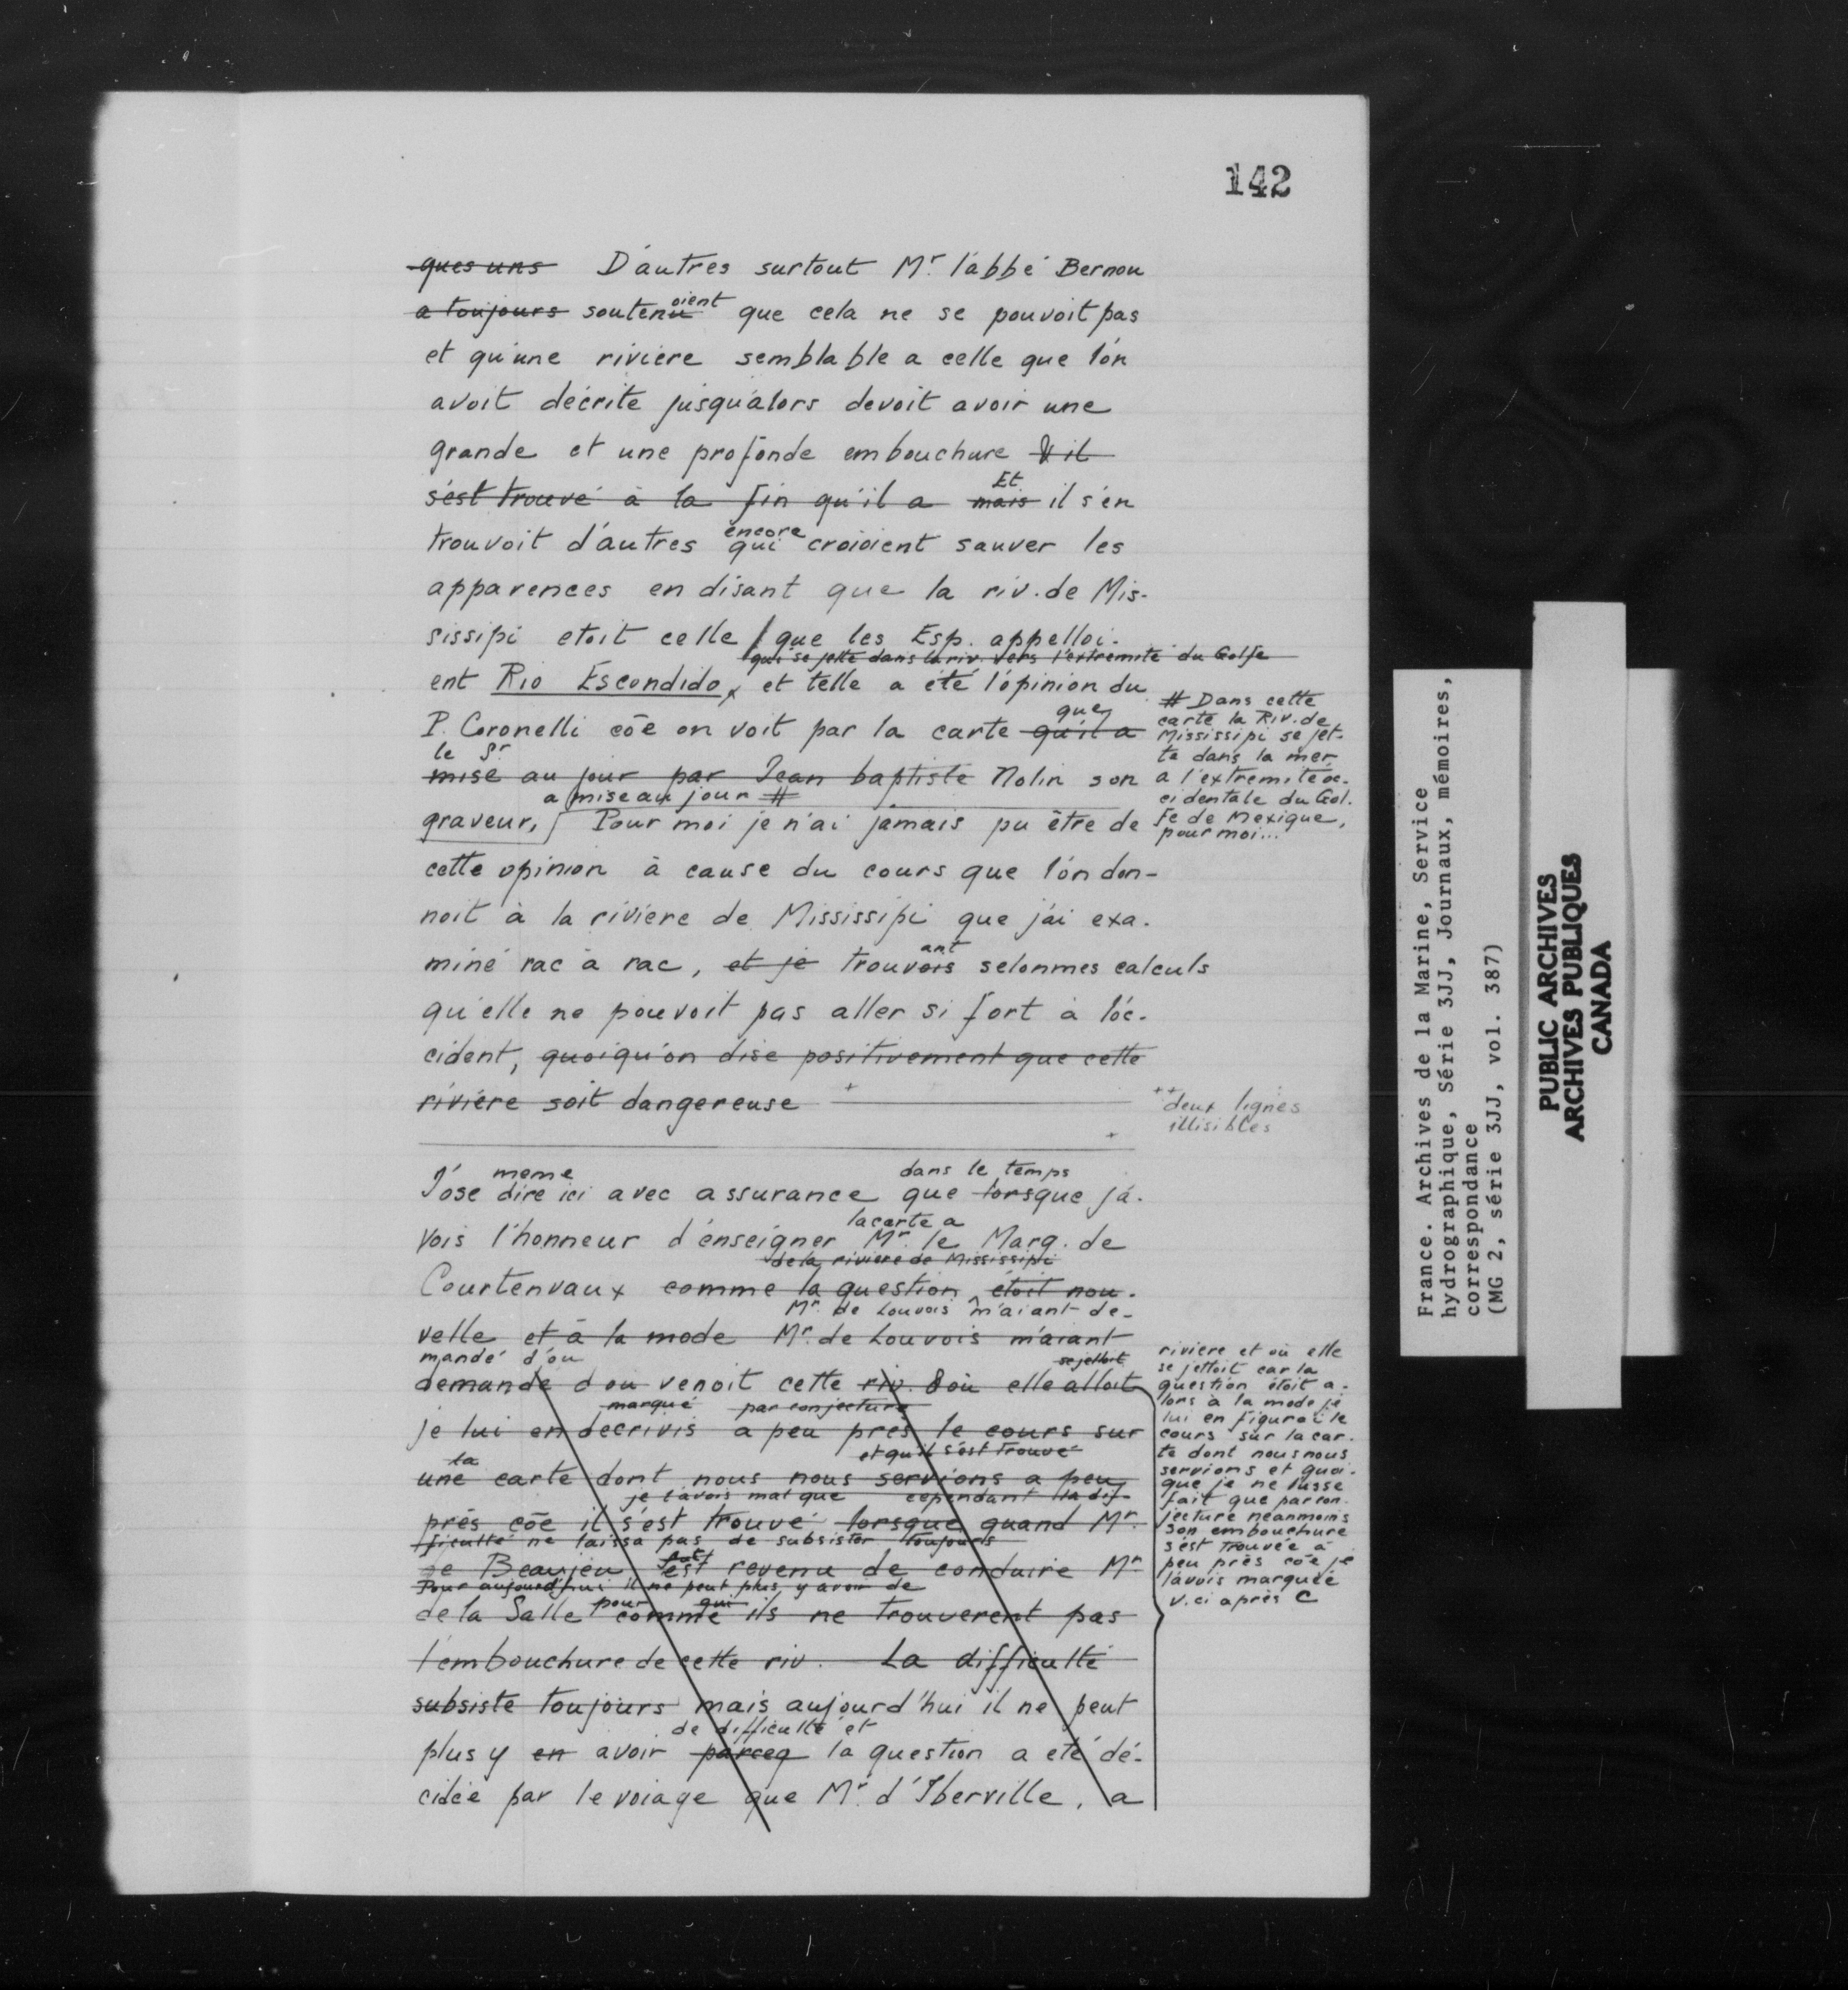 142
ques uns D'autres surtout Mr. l'abbé Bernou
oient
a toujours soutenu que cela ne se pouvoit pas
et qu'une riviere semblable a celle que l'on
avoit décrite jusqu'alors devoit avoir une
grande et une profonde embouchure & il
Et
s'est trouvé à la fin qu'il a mais il s'en
encore
trouvoit d'autres qui croioient sauver les
apparences en disant que la riv. de Mis-
sissipi etoit celle que les Esp. appelloi-
qui se jette dans la riv. vers l'extremité du Golfe
ent Rio Escondido, et telle a été l'opinion du
que
P. Coronelli cōe on voit par la carte qu'il a
le Sr
mise au jour par Jean baptiste Nolin son
a mise au jour #
graveur, Pour moi je n'ai jamais pu être de
# Dans cette
carte la Riv. de
Mississipi se jet-
te dans la mer
a l'extremité oc-
cidentale du Gol-
fe de Mexique,
pour moi...
cette opinion à cause du cours que l'on don-
noit à la riviere de Mississipi que j'ai exa-
ant
miné rac à rac, et je trouvois selon mes calculs
qu'elle ne pouvoit pas aller si fort à l'oc-
cident, quoiqu'on dise positivement que cette
rivière soit dangereuse +
++ deux lignes
illisibles
+
meme dans le temps
J'ose dire ici avec assurance que lorsque j'a-
la carte a
vois l'honneur d'enseigner Mr. le Marq. de
de la riviere de Mississipi
Courtenvaux comme la question étoit nou-
Mr. de Louvois m'aiant de-
velle et à la mode Mr. de Louvois m'aiant
mandé d'ou se jettoit
demande d'ou venoit cette riv. & où elle alloit
marqué par conjecture
je lui en decrivis a peu près le cours sur
la et qu'il s'est trouvé
une carte dont nous nous servions a peu
je l'avois marqué cependant la dif-
près cōe il s'est trouvé lorsque quand Mr.
ficulté ne laissa pas de subsister toujours
de Beaujeu est revenu de conduire Mr
Pour aujourd'hui il ne peut plus y avoir de
pour qui
de la Salle comme ils ne trouverent pas
l'embouchure de cette riv. La difficulté
subsiste toujours mais aujourd'hui il ne peut
de difficulté et
plus y en avoir parceq la question a eté dé-
cidée par le voiage que Mr. d'Iberville, a
riviere et où elle
se jettoit car la
question étoit a-
lors à la mode je
lui en figurai le
cours sur la car-
te dont nous nous
servions et quoi-
que je ne l'usse
fait que par con-
jecture neanmoins
son embouchure
s'est trouvée à
peu près cōe je
l'avois marquée
v. ci après C
France. Archives de la Marine, Service
hydrographique, Série 3JJ, Journaux, mémoires,
correspondance
(MG 2, série 3JJ, vol. 387)
PUBLIC ARCHIVES
ARCHIVES PUBLIQUES
CANADA